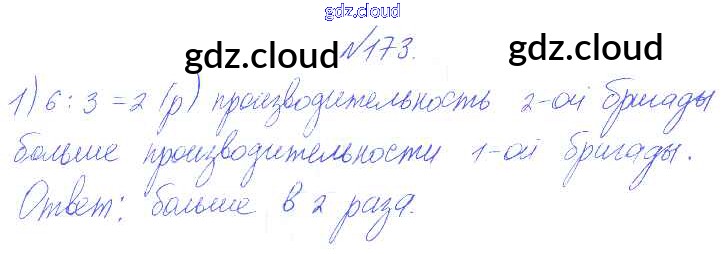 gdz.cloud
№173.
gdz.cloud gdz.cloud
1) 6 : 3 = 2 (р) производительность 2-ой бригады
больше производительности 1-ой бригады.
Ответ: больше в 2 раза.